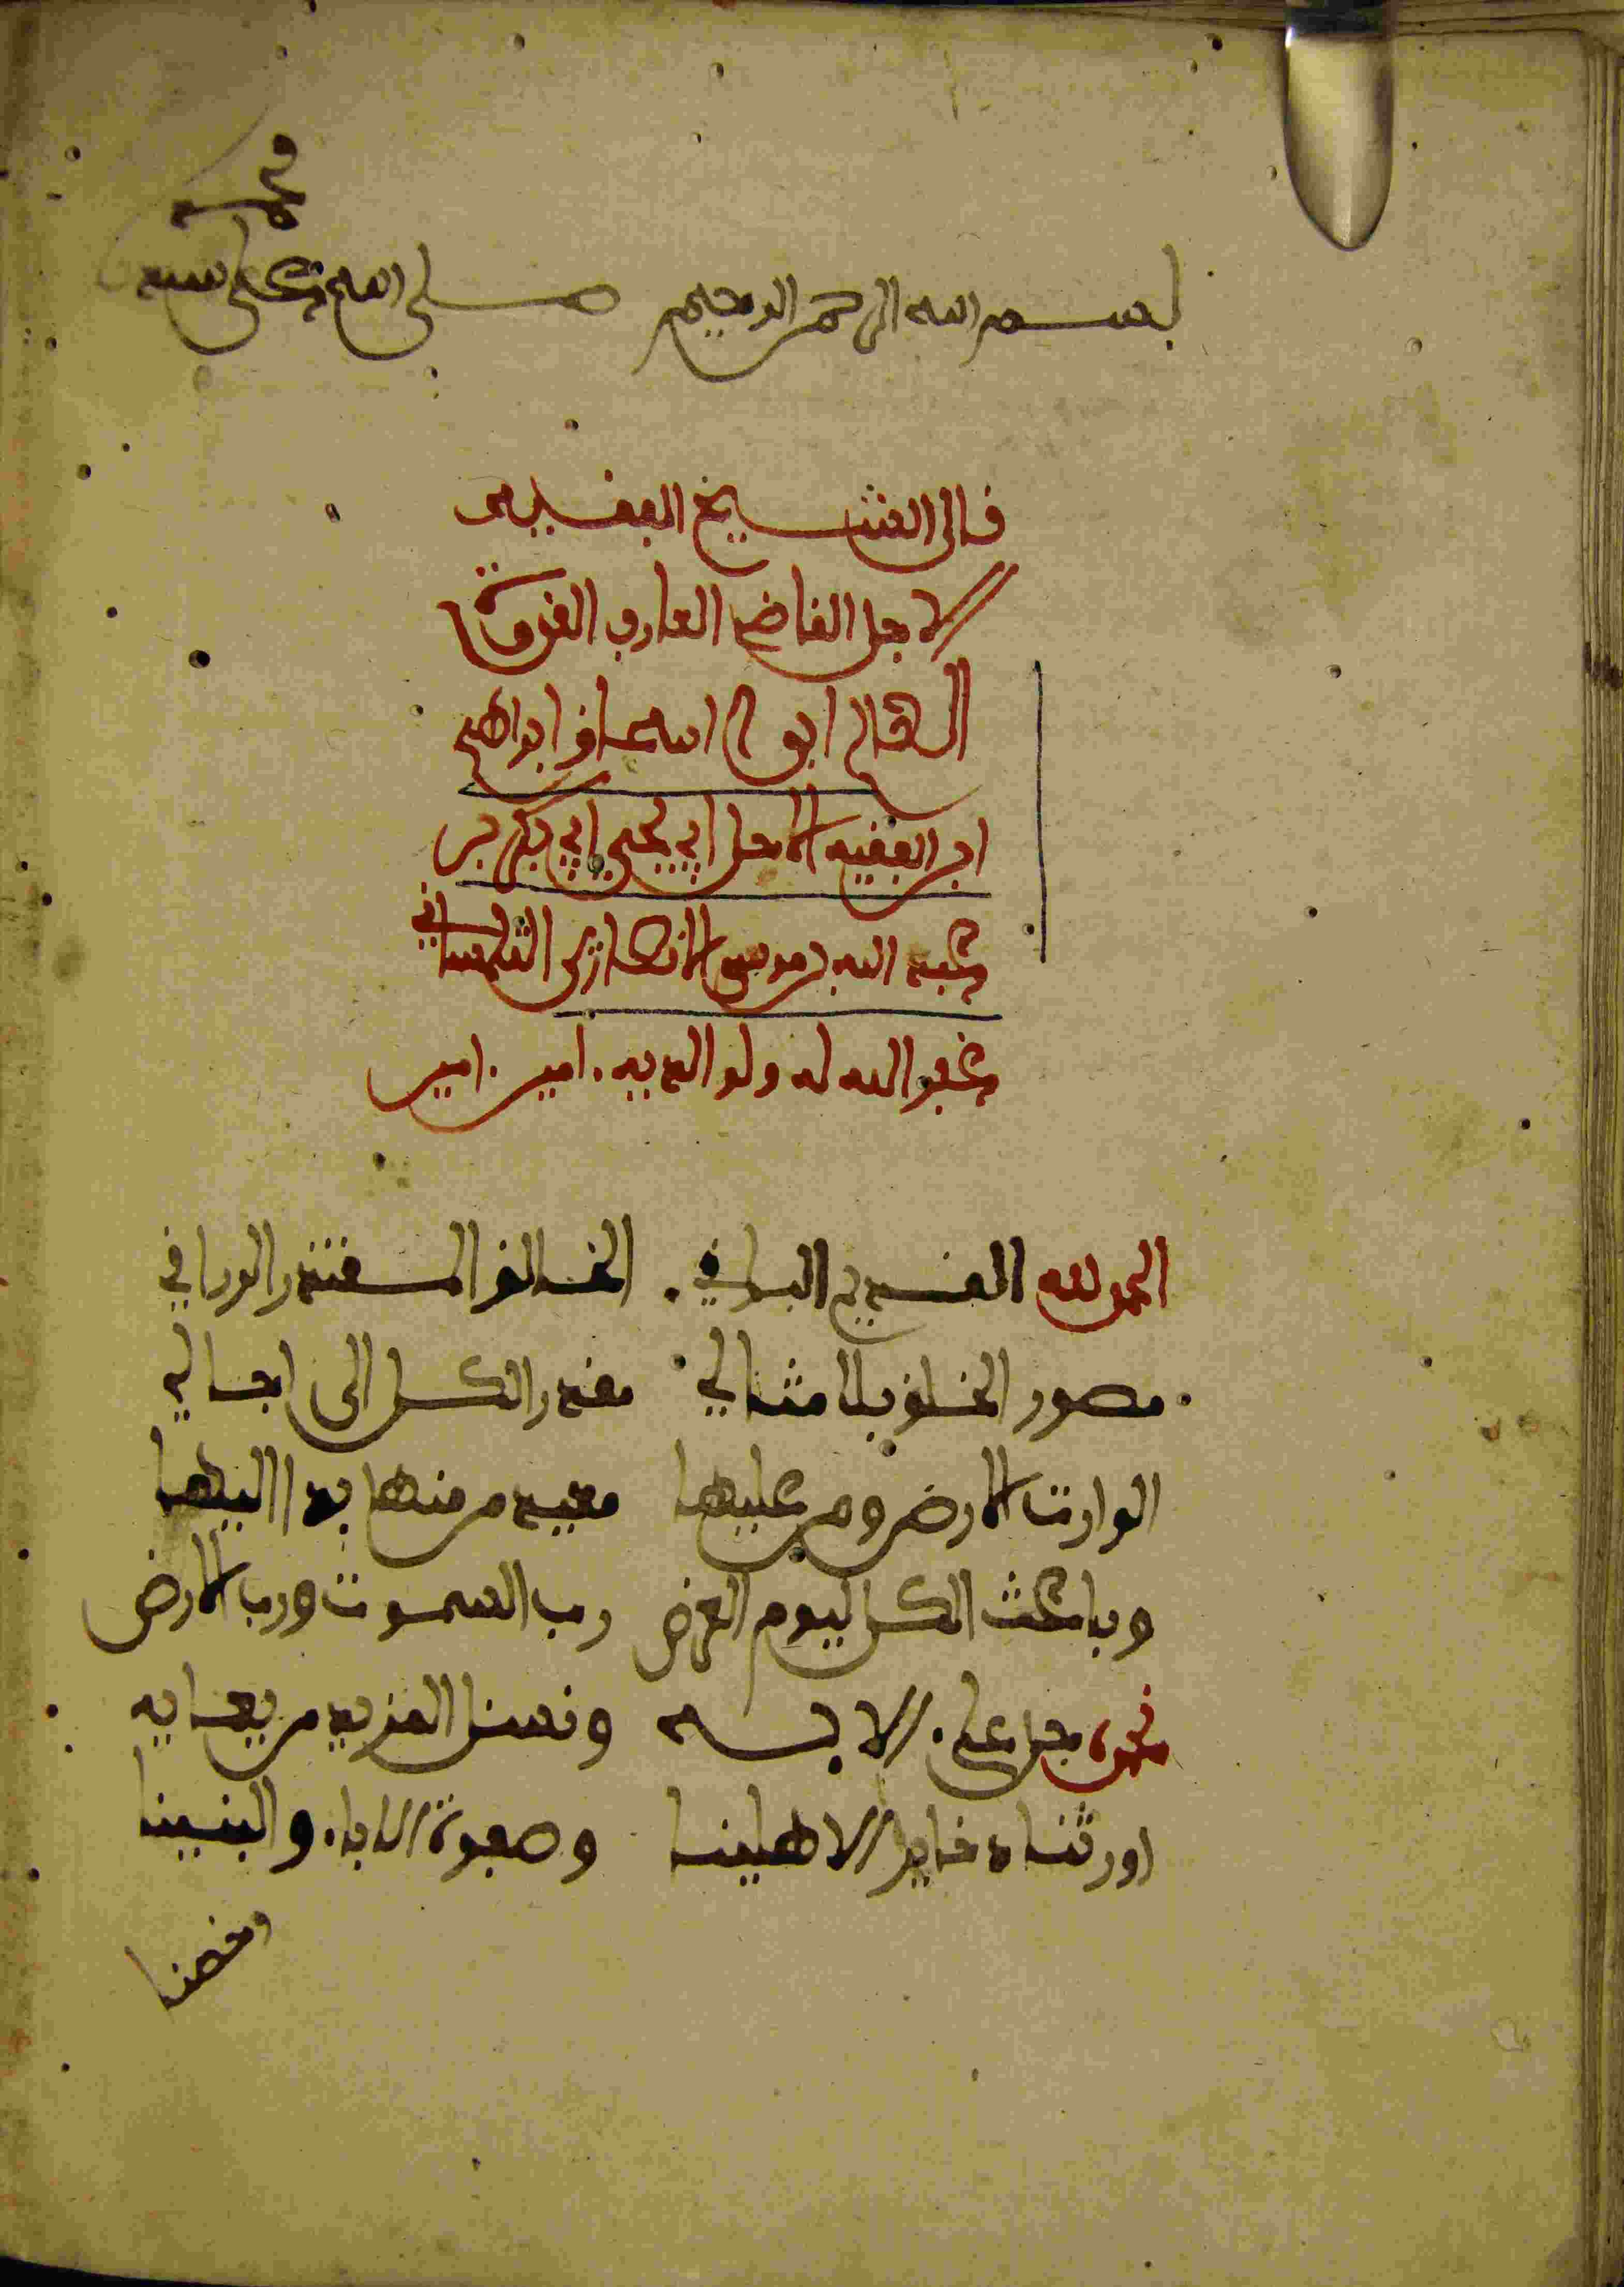 بسم الله الرحمن الرحيم صلى الله على سيدنا
محمد
قال الشيخ الفقيه
الاجل القاضي العارف
العالم ابو اسحاق ابراهيم
ابن الفقيه الاجل ابي يحيى ابي بكر بن
عبد الله بن موسى الانصاري التلمساني
غفر الله له ولوالديه . امين . امين
الحمد لله القديم الباقي . الخالق المقتدر الوراق
. مصور الخلق بلا مثال مقدر الكل الى اجال
الوارث الارض ومن عليها معيد من منها بدا اليها
وباعث الكل ليوم العرض رب السموت ورب الارض
نحمده جل على الابد ونسئل المزيد من
اورثناه خاير الاهلينا وصفوة الابا والبنينا